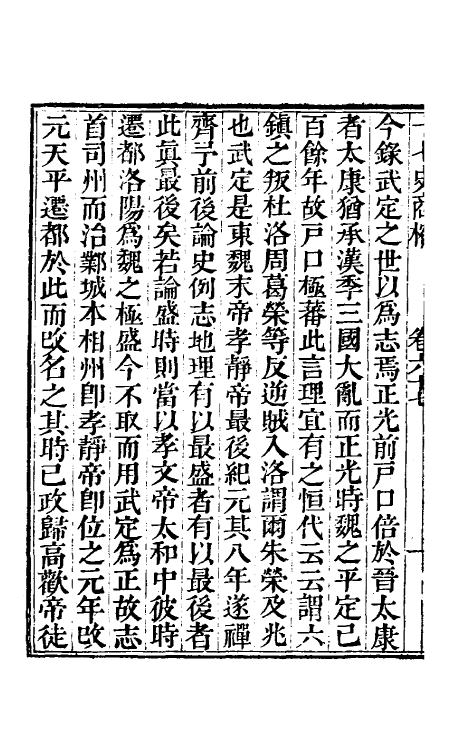 今錄武定之世以爲志焉正光前戸口倍於晉太康
者太康猶承漢季三國大亂而正光時魏之平定已
百餘年故戸口極蕃此言理宜有之恒代云云謂六
鎮之叛杜洛周葛榮等反逆賊入洛謂爾朱榮及兆
也武定是東魏末帝孝靜帝最後紀元其八年遂禪
齊予前後論史例志地理有以最盛者有以最後者
此眞最後矣若論盛時則當以孝文帝太和中彼時
遷都洛陽爲魏之極盛今不取而用武定爲正故志
首司州而治鄴城本相州卽孝靜帝卽位之元年改
元天平遷都於此而改名之其時已政歸高歡帝徒